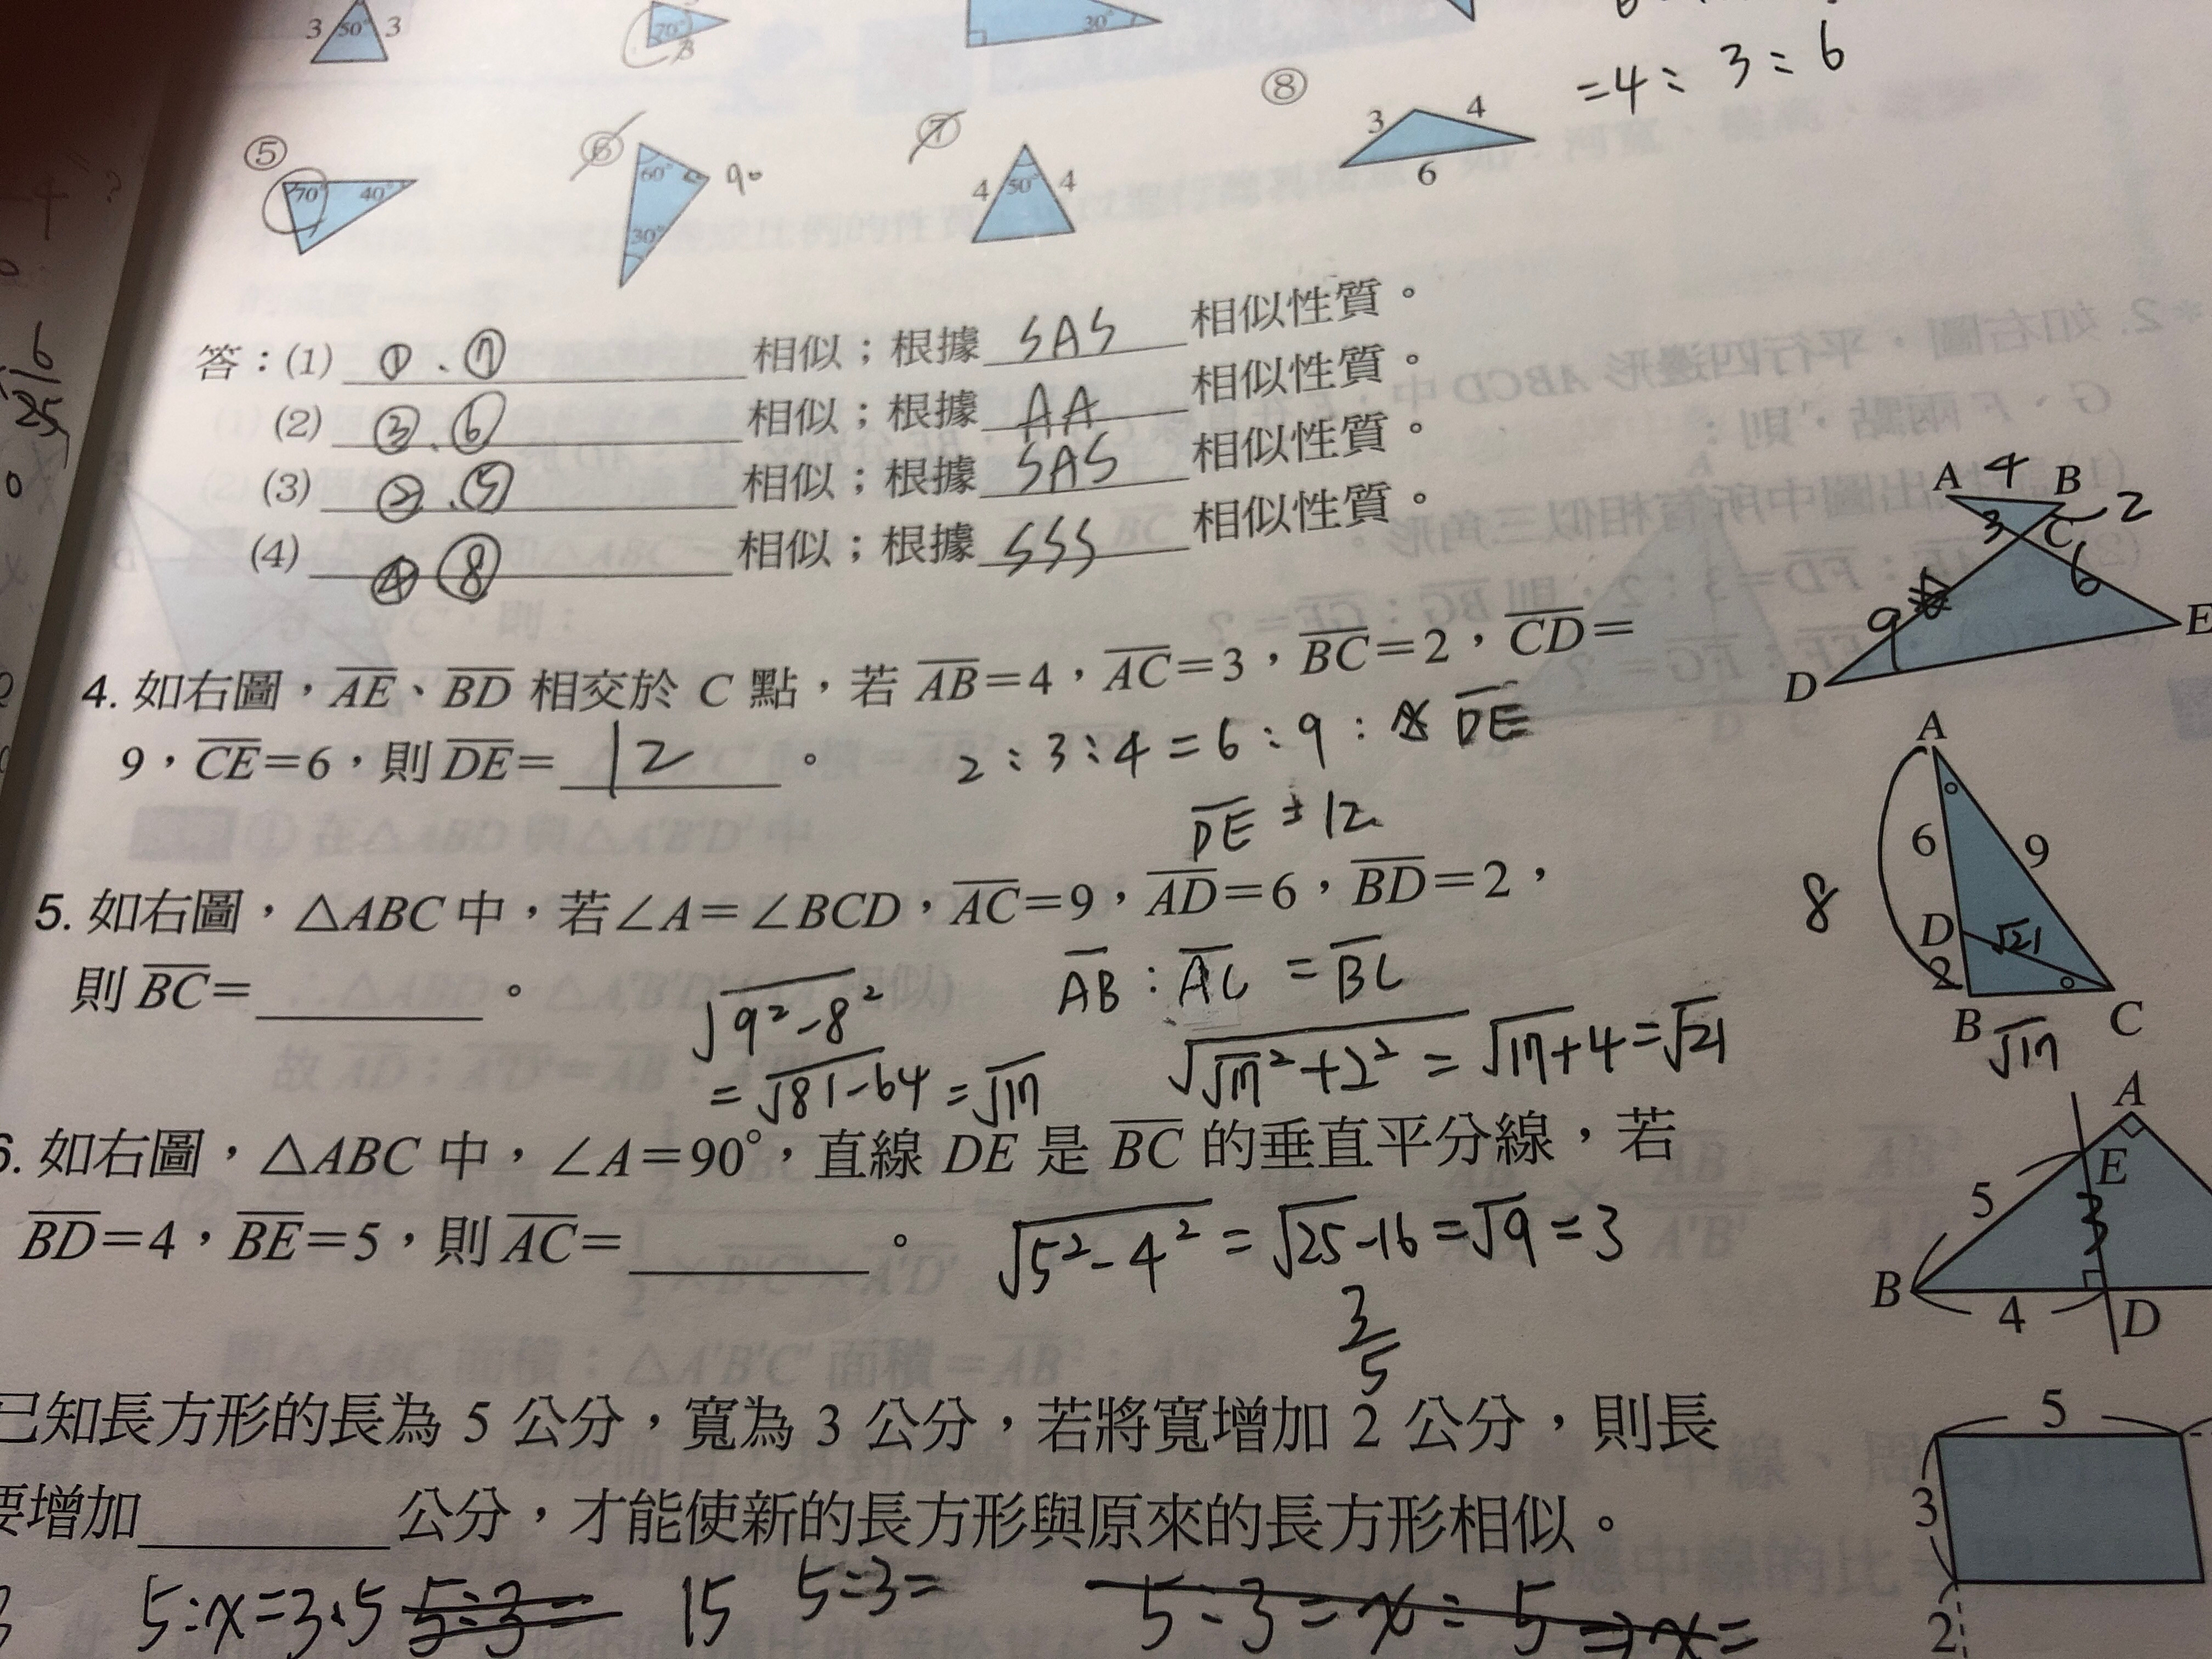 = 4 : 3 : 6
3 50° 3
70° 3
30°
⑤ 70° 40°
⑥ 60° 30° 90
⑦ 4 50° 4
⑧ 3 4 6
答:(1) ①、⑦ 相似;根據 SAS 相似性質。
(2) ③、⑥ 相似;根據 AA 相似性質。
(3) ②、⑤ 相似;根據 SAS 相似性質。
(4) ④ ⑧ 相似;根據 SSS 相似性質。
A 4 B 2
3 C
9 6
D E
4. 如右圖,AE、BD 相交於 C 點,若 AB=4,AC=3,BC=2,CD=
9,CE=6,則 DE= 12 。
2 : 3 : 4 = 6 : 9 : DE
DE = 12
5. 如右圖,△ABC 中,若∠A=∠BCD,AC=9,AD=6,BD=2,
則 BC=______。
AB : AC = BC
√9²-8²
=√81-64 =√17
√√17²+2² = √17+4=√21
A
6 9
8
D √21
2
B √17 C
6. 如右圖,△ABC 中,∠A=90°,直線 DE 是 BC 的垂直平分線,若
BD=4,BE=5,則 AC=______。
√5²-4² = √25-16 =√9 =3
3/5
A
E
5 3
B 4 D
已知長方形的長為 5 公分,寬為 3 公分,若將寬增加 2 公分,則長
要增加______公分,才能使新的長方形與原來的長方形相似。
5
3
2
5:x=3:5 5:3= 15 5:3= 5:3=x:5 ⇒x=